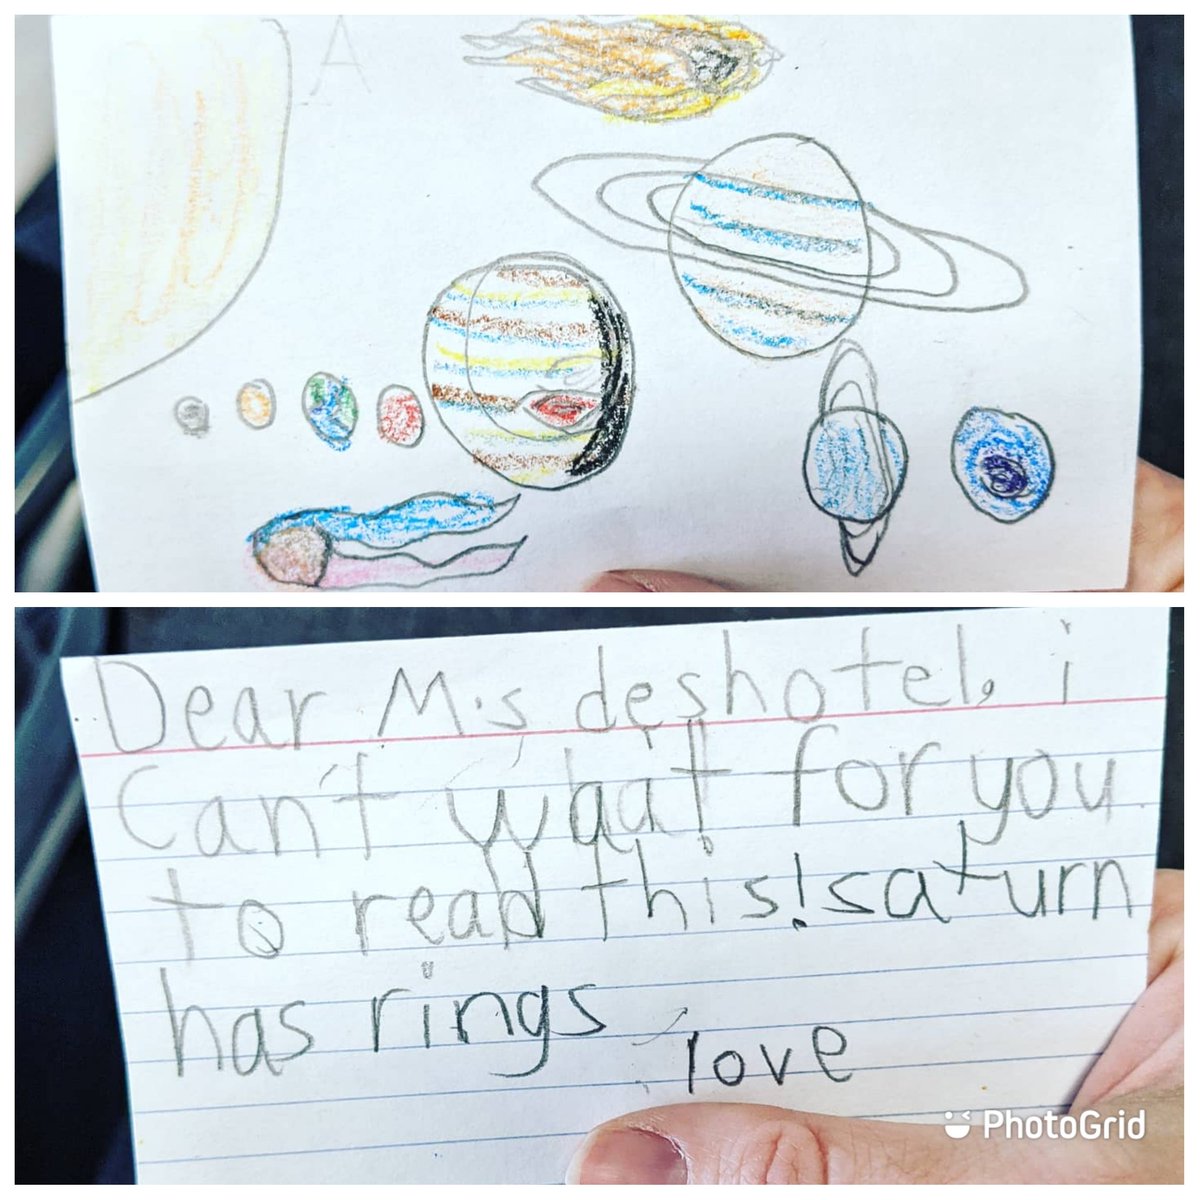 A
Dear M.s deshotel, i
Can't waat for you
to read this! saturn
has rings
love
PhotoGrid